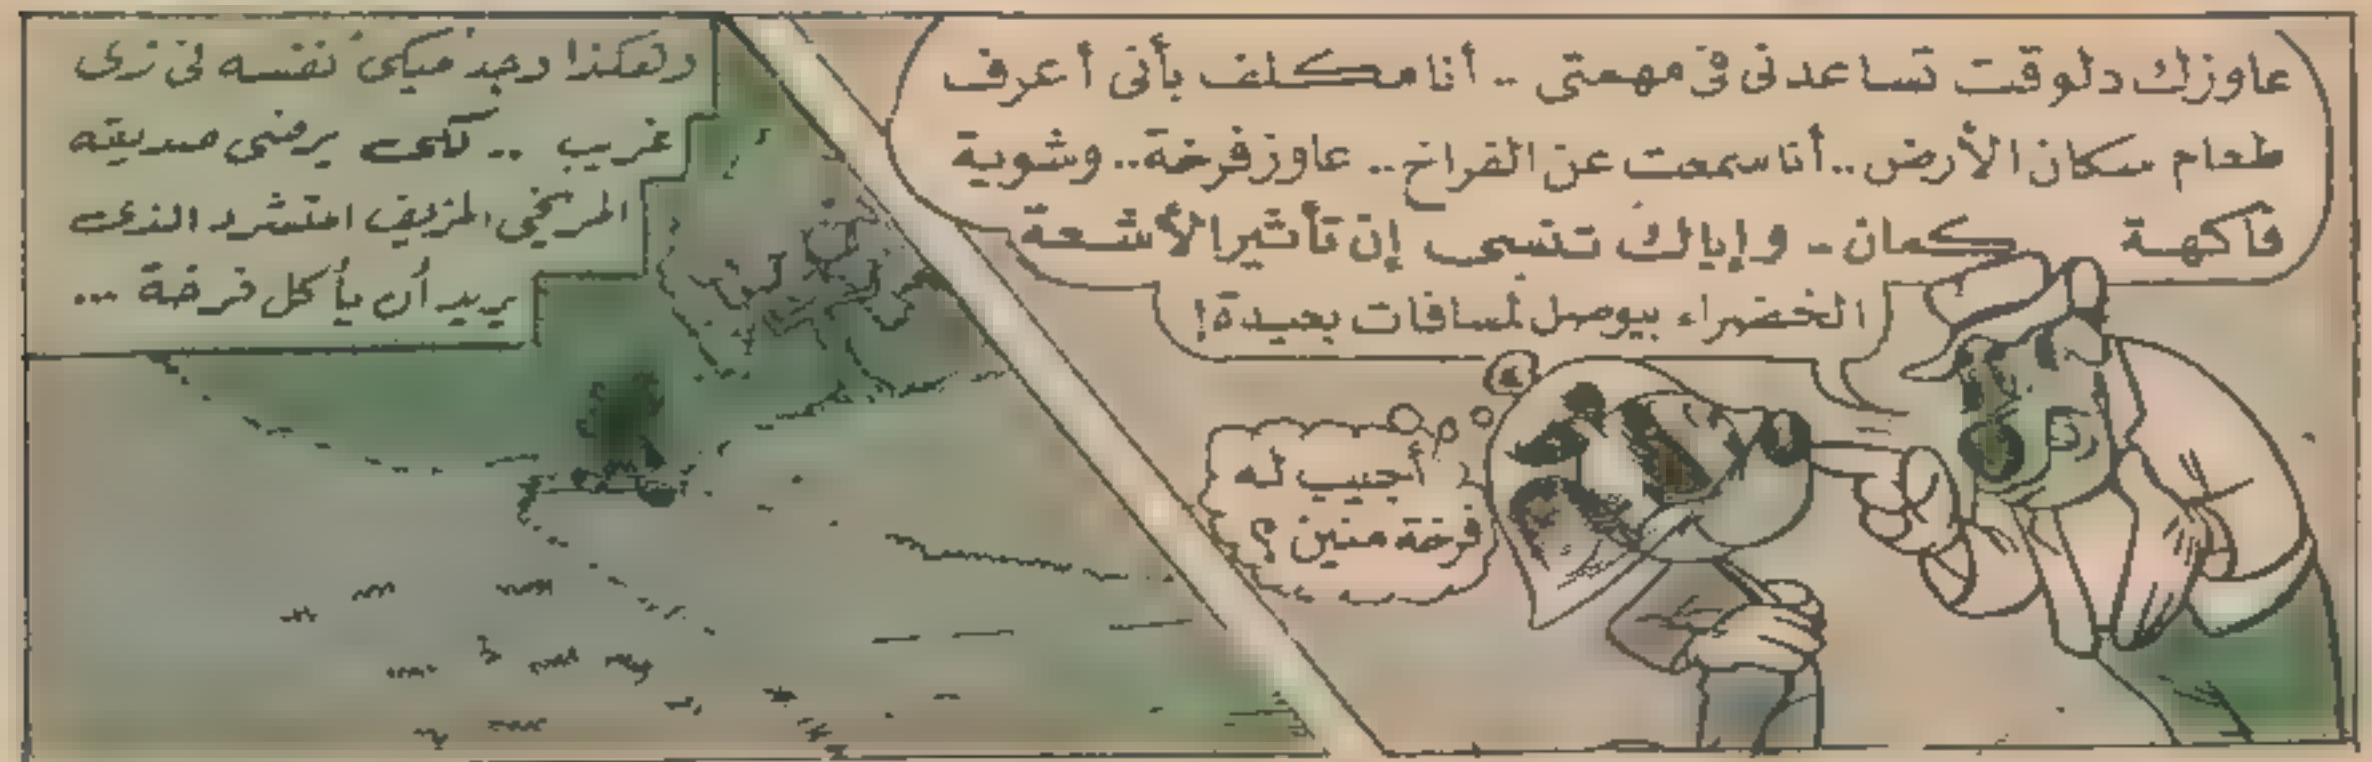 عاوزك دلوقت تساعدنى فى مهمتى .. أنا مكلف بأنى أعرف
طعام سكان الأرض .. أنا سمعت عن الفراخ .. عاوز فرخة .. وشوية
فاكهة كمان - وإياك تنسى إن تأثير الأشعة
الخضراء بيوصل لمسافات بعيدة!
أجيب له
فرخة منين ؟
وهكذا وجد ميكى نفسه فى زى
غريب .. لكى يرضى صديقه
المريخى المزيف المتشرد الذى
يريد أن يأكل فرخة ...